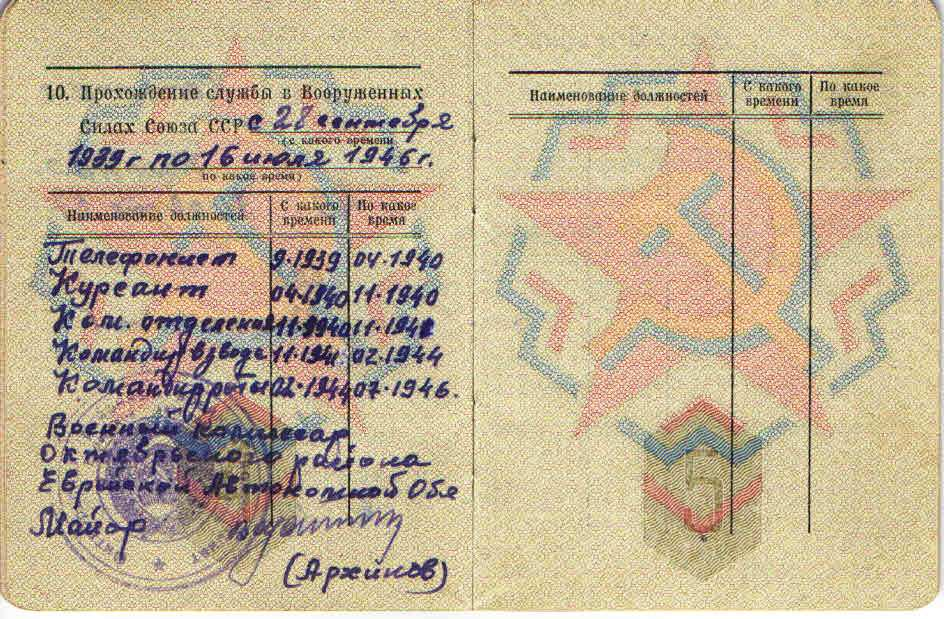 10. Прохождение службы в Вооруженных
Силах Союза ССР с 28 сентября
(с какого времени
1939 г по 16 июля 1946 г.
по какое время)
Наименование должностей С какого времени По какое время
Телефонист 9.1939 04.1940
Курсант 04.1940 11.1940
Ком. отделения 11.1940 11.1941
Командир взвода 11.1941 02.1944
Командир роты 02.1944 07.1946.
Военный комиссар
Октябрьского района
Еврейской Автономной Обл
Майор
(Архипов)
Наименование должностей С какого времени По какое время
5